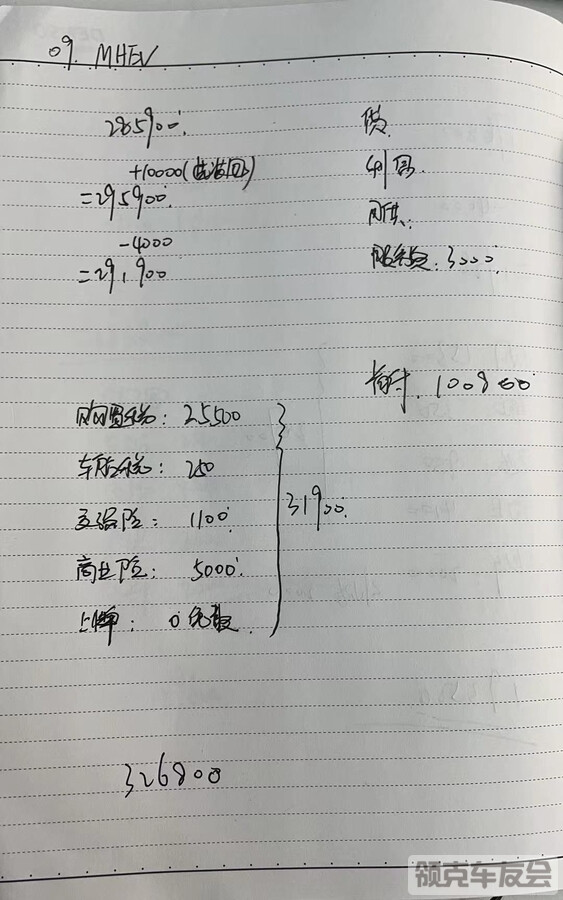 09. MHEV
285900
+10000(
=295900
-4000
=291900
贷
利息
服务费: 3000
首付. 100800
购置税: 25500
车船税: 250
交强险: 1100
商业险: 5000
上牌: 0 免费
31900
326800
领克车友会